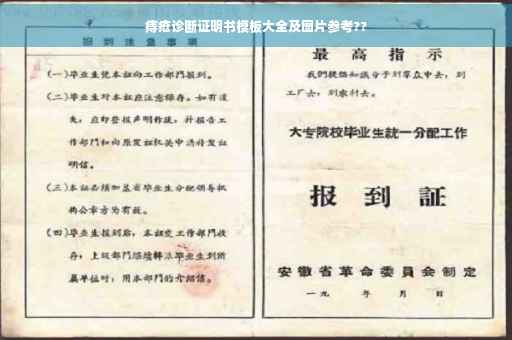 痔疮诊断证明书模板大全及图片参考??
报到注意事项
(一)毕业生凭本证向工作部门报到。
(二)毕业生对本证应注意保存。如有遗
失,应即登报声明作废,并报告工
作部门和向原发证机关申请补发证
明信。
(三)本证必须加盖省毕业生分配领导机
构公章方为有效。
(四)毕业生报到后,本证交工作部门收
存;上级部门继续转派毕业生到所
属单位时,用本部门的介绍信。
最高指示
我们提倡知识分子到群众中去,到
工厂去,到农村去。
大专院校毕业生統一分配工作
报到証
安徽省革命委員会制定
一九 年 月 日